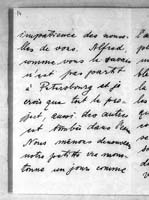 impatience des nouvel-
les de vous. Alfred,
comme vous le savez
n'est pas parti
à Petersbourg et je
crois que tout le pro-
jet, aussi des autres
est tombé dans l'eau
Nous menons désormais
notre petite vie mono-
tone un jour comme